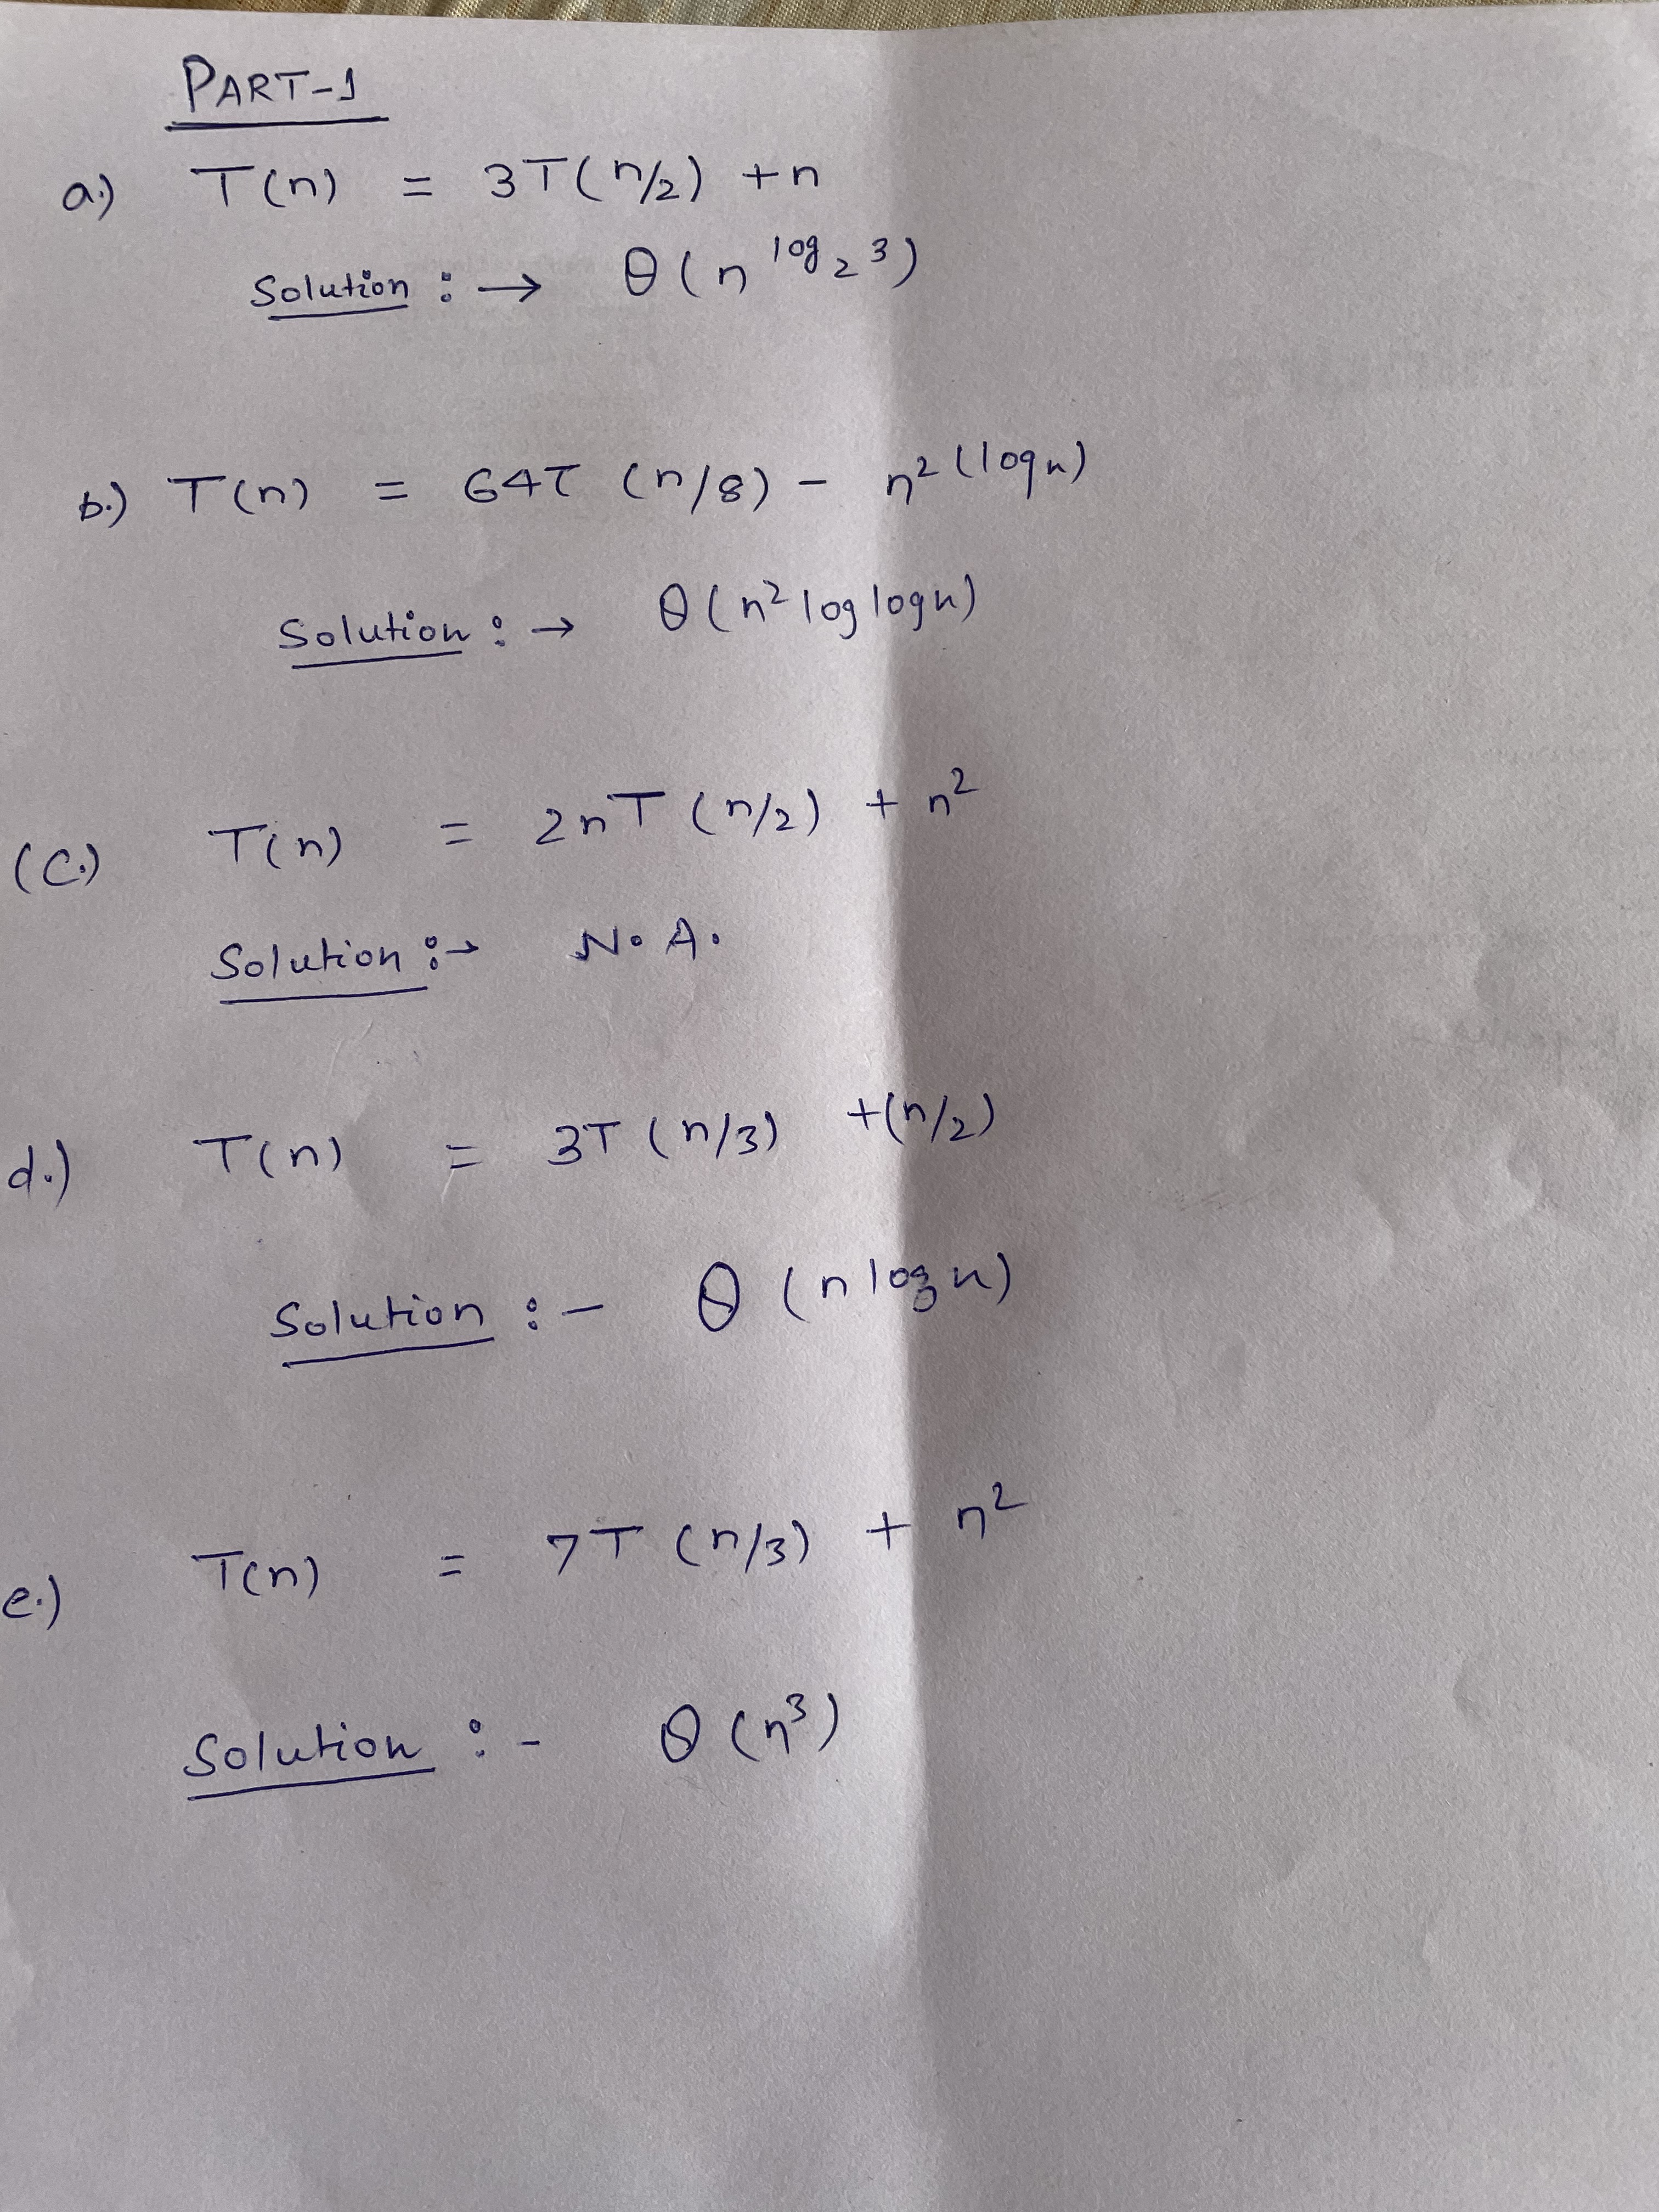 PART-1
a.) T(n) = 3T(n/2) +n
Solution : → θ(n^log₂3)
b.) T(n) = 64T (n/8) - n²(logn)
Solution : → θ(n² log logn)
(C.) T(n) = 2nT (n/2) + n²
Solution :→ N.A.
d.) T(n) = 3T (n/3) +(n/2)
Solution :- θ (n logn)
e.) T(n) = 7T (n/3) + n²
Solution :- θ(n³)